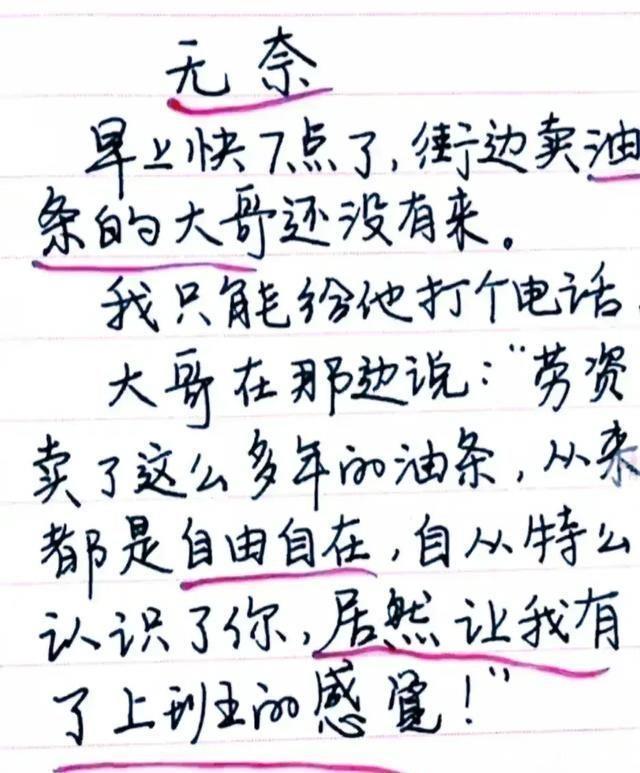 无奈
早上快7点了,街边卖油
条的大哥还没有来。
我只能给他打个电话,
大哥在那边说:“劳资
卖了这么多年的油条,从来
都是自由自在,自从特么
认识了你,居然让我有
了上班的感觉!”